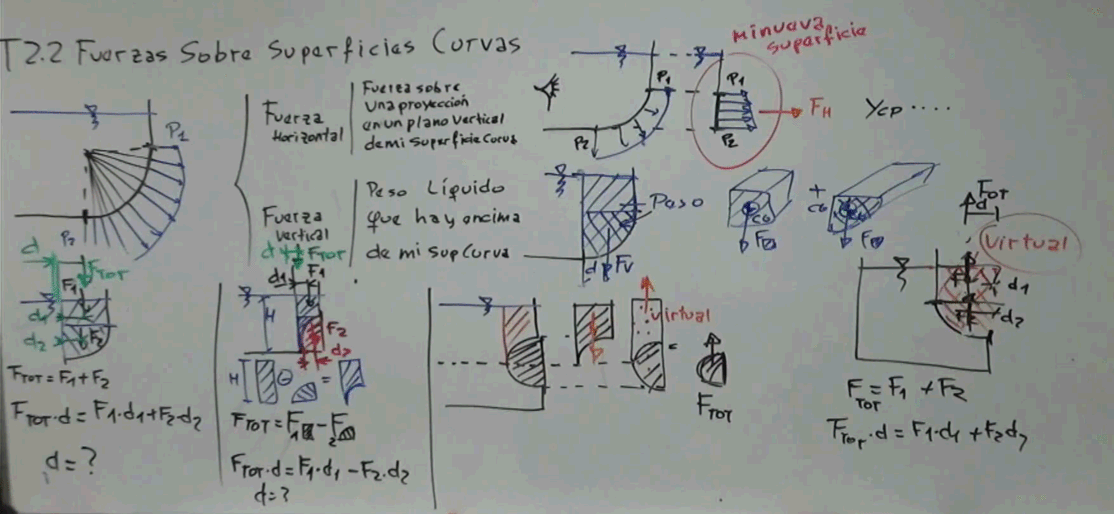 T2.2 Fuerzas Sobre Superficies Curvas
P1
P2
Fuerza
Horizontal
Fuerza sobre
una proyección
en un plano vertical
de mi superficie curva
Fuerza
vertical
Peso Líquido
que hay encima
de mi sup Curva
P1
P2
mi nueva
superficie
P1
P2
FH
Ycp ....
Peso
d
FV
CG
F
+
CG
CG
F
FTOT
d
virtual
d1
d2
FTOT = F1 + F2
FTOT·d = F1·d1 + F2 d2
d
FTOT
F1
d1
d2
F2
FTOT = F1 + F2
FTOT·d = F1·d1 + F2·d2
d = ?
d
FTOT
d1
F1
H
F2
d2
H
=
FTOT = F1 - F2
FTOT·d = F1·d1 - F2·d2
d = ?
virtual
=
FTOT